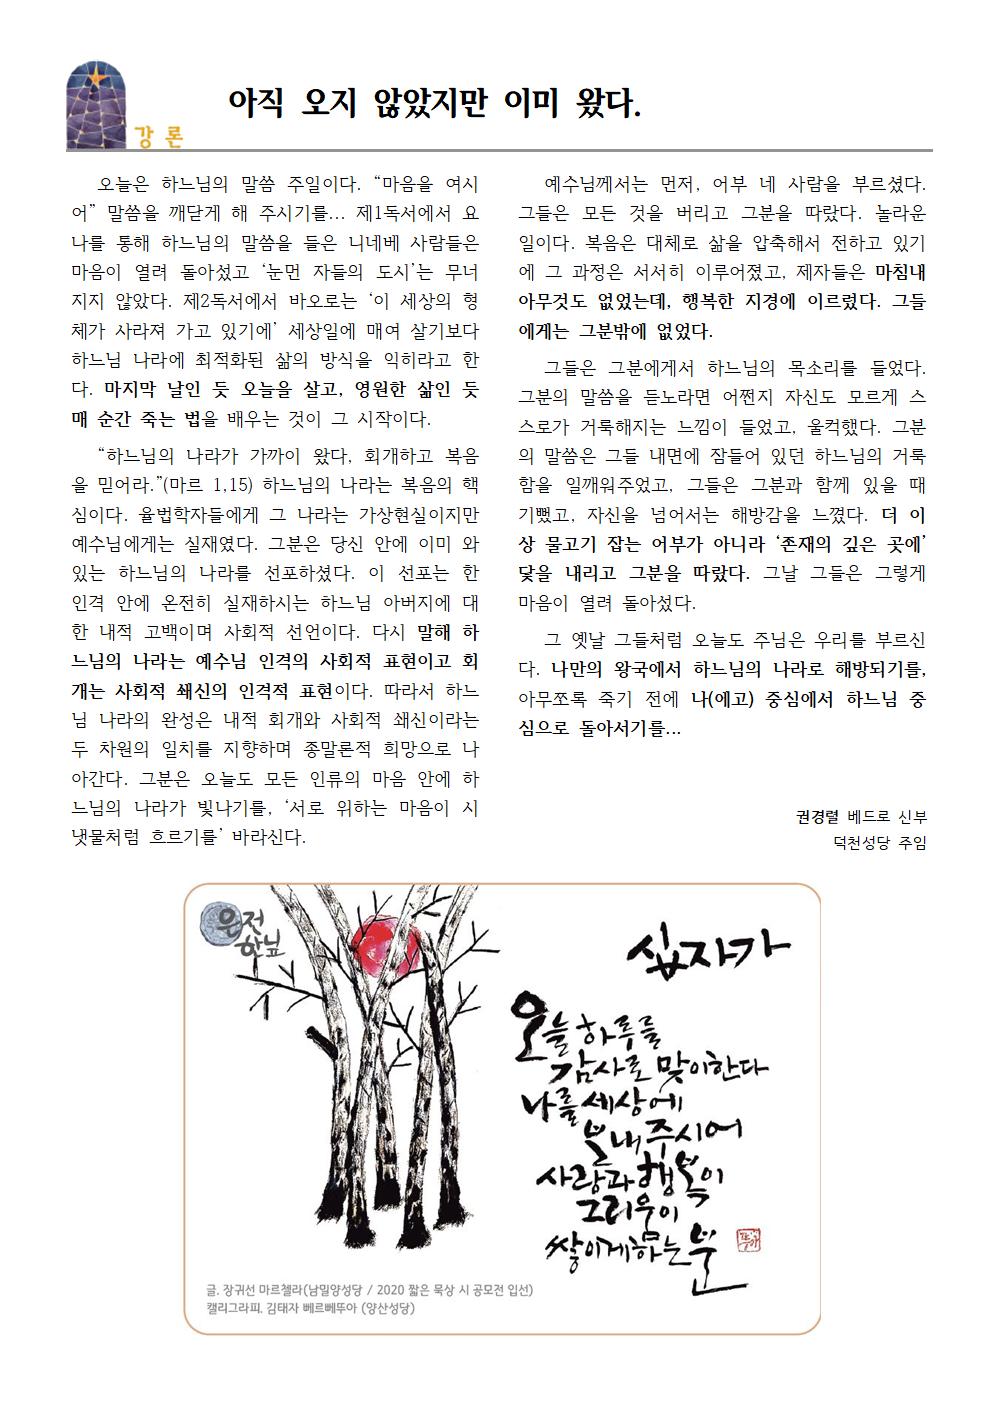 강 론
아직 오지 않았지만 이미 왔다.
오늘은 하느님의 말씀 주일이다. “마음을 여시
어” 말씀을 깨닫게 해 주시기를... 제1독서에서 요
나를 통해 하느님의 말씀을 들은 니네베 사람들은
마음이 열려 돌아섰고 ‘눈먼 자들의 도시’는 무너
지지 않았다. 제2독서에서 바오로는 ‘이 세상의 형
체가 사라져 가고 있기에’ 세상일에 매여 살기보다
하느님 나라에 최적화된 삶의 방식을 익히라고 한
다. 마지막 날인 듯 오늘을 살고, 영원한 삶인 듯
매 순간 죽는 법을 배우는 것이 그 시작이다.
“하느님의 나라가 가까이 왔다, 회개하고 복음
을 믿어라.”(마르 1,15) 하느님의 나라는 복음의 핵
심이다. 율법학자들에게 그 나라는 가상현실이지만
예수님에게는 실재였다. 그분은 당신 안에 이미 와
있는 하느님의 나라를 선포하셨다. 이 선포는 한
인격 안에 온전히 실재하시는 하느님 아버지에 대
한 내적 고백이며 사회적 선언이다. 다시 말해 하
느님의 나라는 예수님 인격의 사회적 표현이고 회
개는 사회적 쇄신의 인격적 표현이다. 따라서 하느
님 나라의 완성은 내적 회개와 사회적 쇄신이라는
두 차원의 일치를 지향하며 종말론적 희망으로 나
아간다. 그분은 오늘도 모든 인류의 마음 안에 하
느님의 나라가 빛나기를, ‘서로 위하는 마음이 시
냇물처럼 흐르기를’ 바라신다.
예수님께서는 먼저, 어부 네 사람을 부르셨다.
그들은 모든 것을 버리고 그분을 따랐다. 놀라운
일이다. 복음은 대체로 삶을 압축해서 전하고 있기
에 그 과정은 서서히 이루어졌고, 제자들은 마침내
아무것도 없었는데, 행복한 지경에 이르렀다. 그들
에게는 그분밖에 없었다.
그들은 그분에게서 하느님의 목소리를 들었다.
그분의 말씀을 듣노라면 어쩐지 자신도 모르게 스
스로가 거룩해지는 느낌이 들었고, 울컥했다. 그분
의 말씀은 그들 내면에 잠들어 있던 하느님의 거룩
함을 일깨워주었고, 그들은 그분과 함께 있을 때
기뻤고, 자신을 넘어서는 해방감을 느꼈다. 더 이
상 물고기 잡는 어부가 아니라 ‘존재의 깊은 곳에’
닻을 내리고 그분을 따랐다. 그날 그들은 그렇게
마음이 열려 돌아섰다.
그 옛날 그들처럼 오늘도 주님은 우리를 부르신
다. 나만의 왕국에서 하느님의 나라로 해방되기를,
아무쪼록 죽기 전에 나(에고) 중심에서 하느님 중
심으로 돌아서기를...
권경렬 베드로 신부
덕천성당 주임
은전
한닢
십자가
오늘 하루를
감사로 맞이한다
나를 세상에
보내 주시어
사랑과 행복이
그리움이
쌓이게 하는 분
글. 장귀선 마르첼라(남밀양성당 / 2020 짧은 묵상 시 공모전 입선)
캘리그라피. 김태자 베르베뚜아 (양산성당)